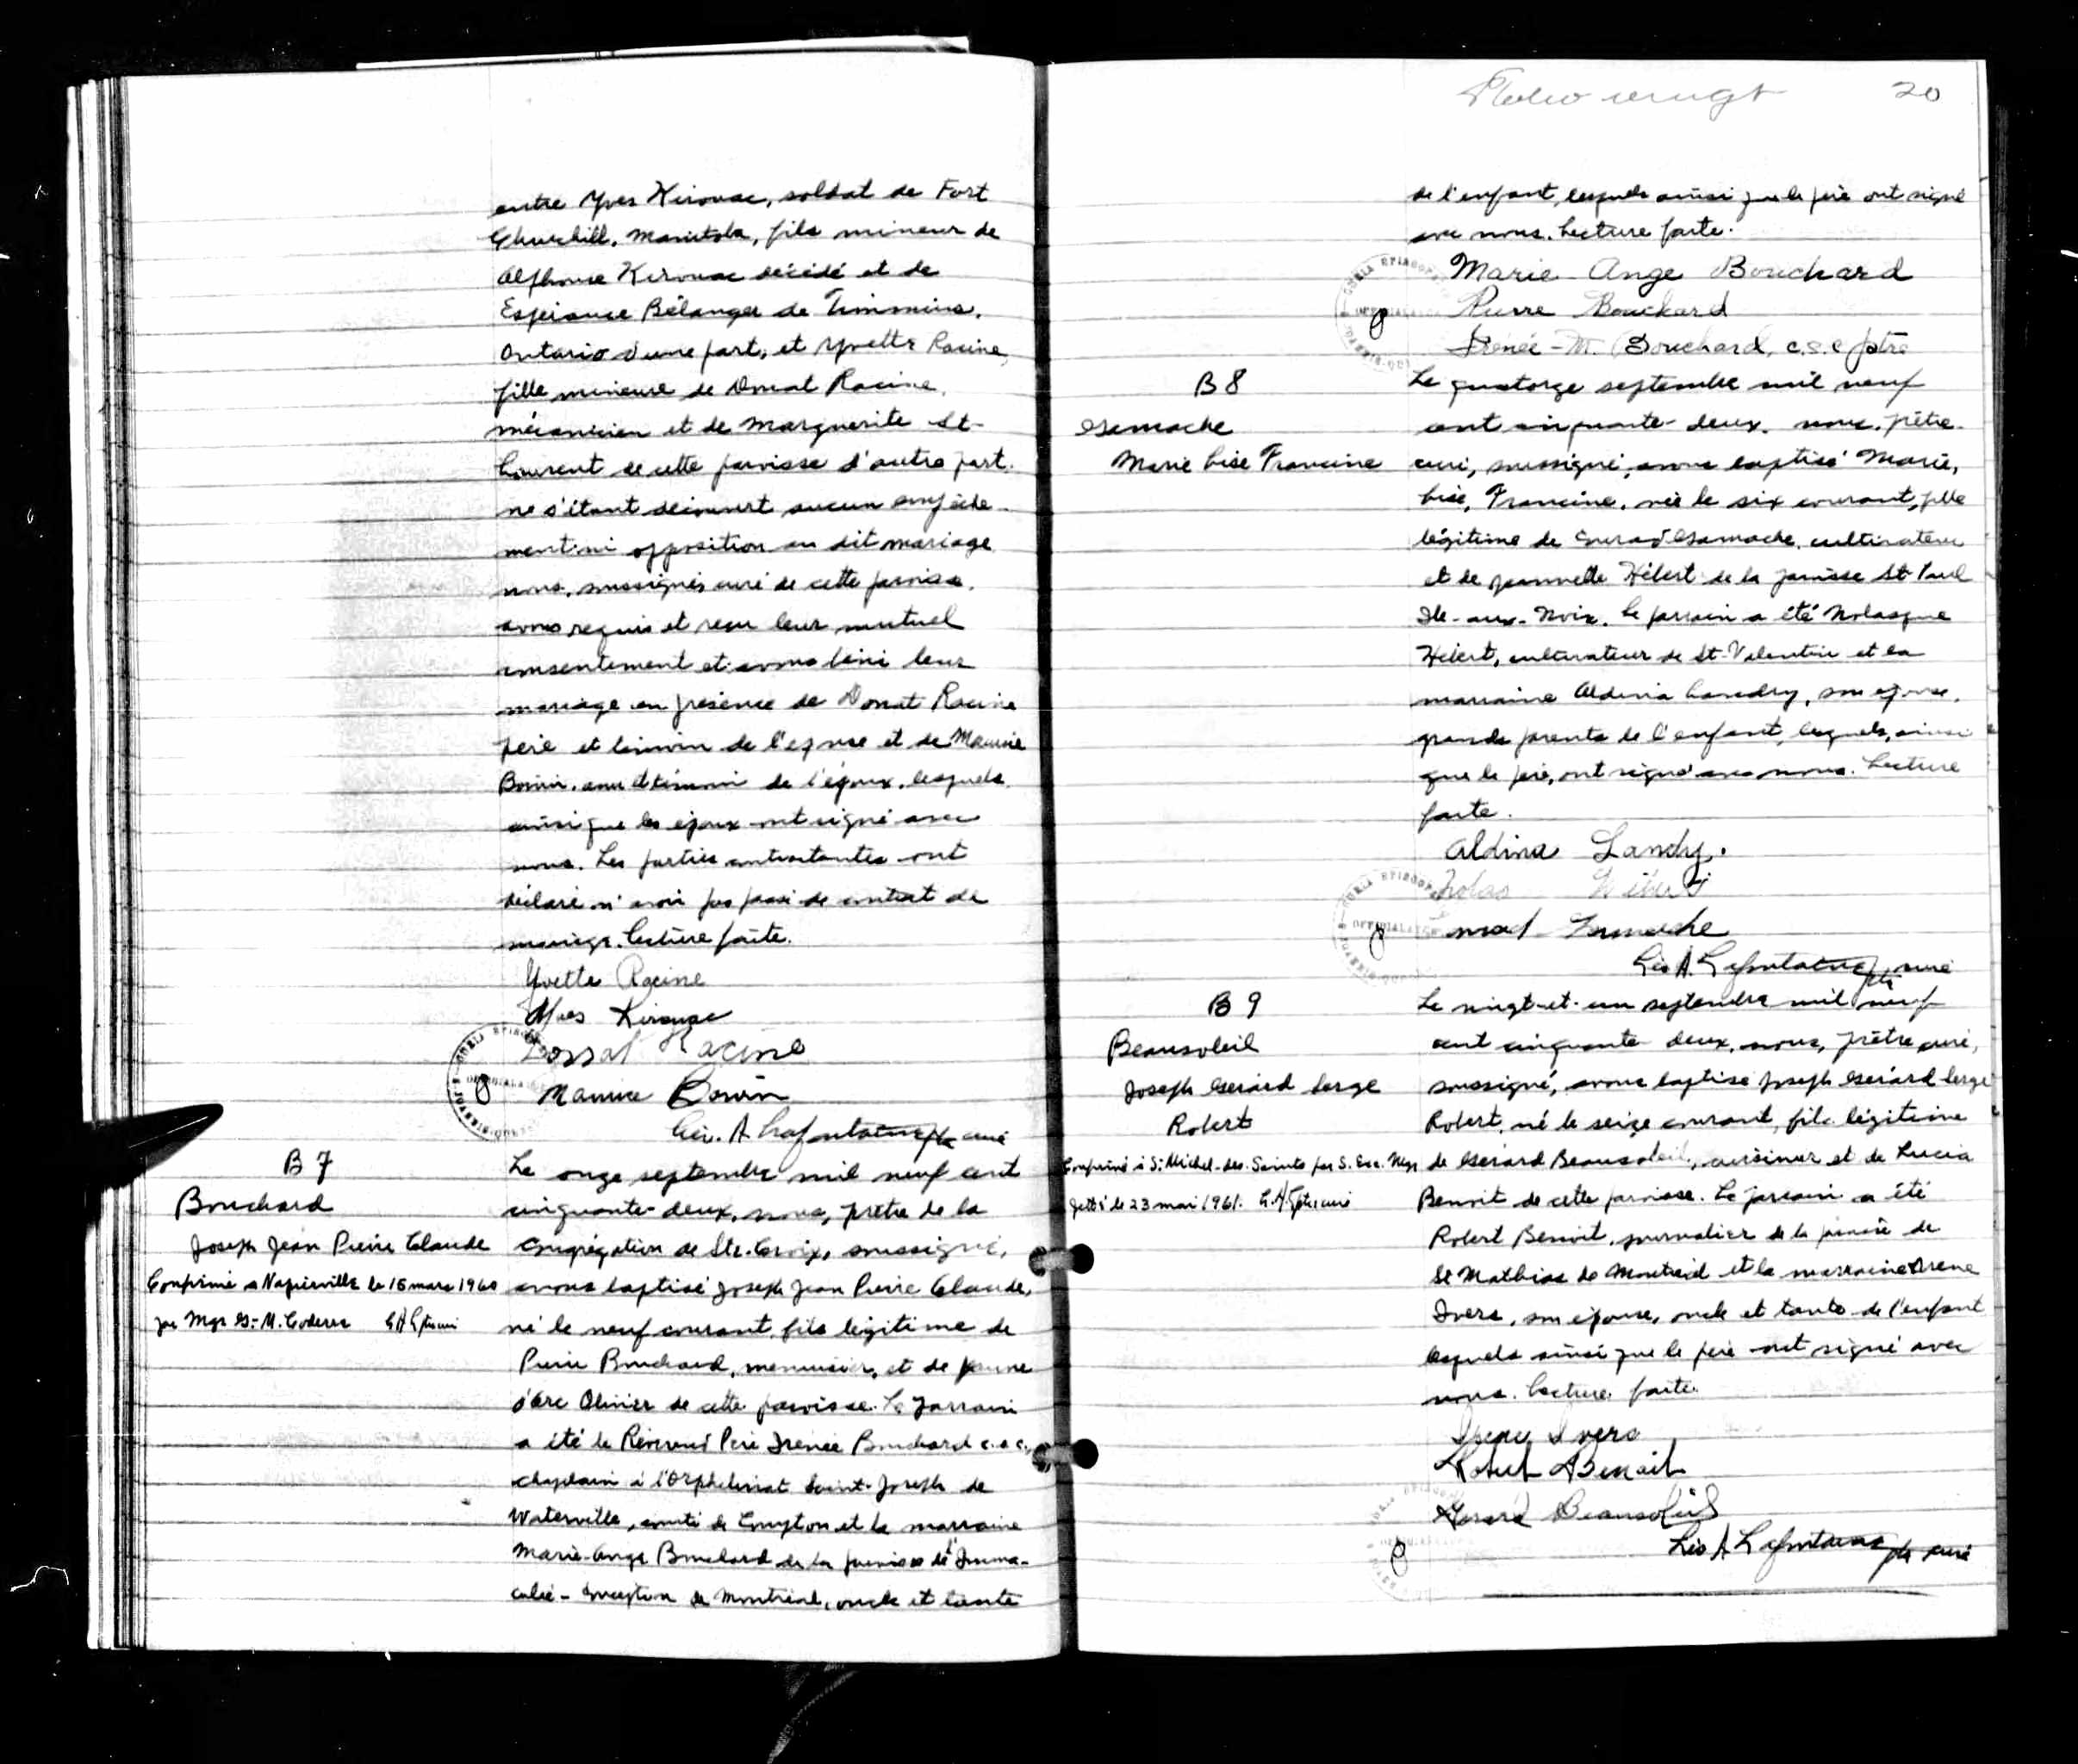 entre Yves Kirouac, soldat de Fort
Churchill, Manitoba, fils mineur de
Alphonse Kirouac décédé et de
Espérance Bélanger de Timmins,
Ontario d'une part, et Yvette Racine,
fille mineure de Donat Racine,
mécanicien et de Marguerite St-
Laurent de cette paroisse d'autre part.
ne s'étant découvert aucun empêche-
ment ni opposition au dit mariage
nous, soussigné, curé de cette paroisse,
avons requis et reçu leur mutuel
consentement et avons béni leur
mariage en présence de Donat Racine
père et témoin de l'épouse et de Maurice
Boivin, ami et témoin de l'époux, lesquels
ainsi que les époux ont signé avec
nous. Les parties contractantes ont
déclaré n'avoir pas passé de contrat de
mariage. Lecture faite.
Yvette Racine
Yves Kirouac
Donat Racine
Maurice Boivin
Léo. A. Lafontaine ptr curé
B 7
Bouchard
Joseph Jean Pierre Claude
Confirmé à Napierville le 15 mars 1960
par Mgr G.-M. Coderre
Le onze septembre mil neuf cent
cinquante-deux, nous, prêtre de la
Congrégation de Ste-Croix, soussigné,
avons baptisé Joseph Jean Pierre Claude,
né le neuf courant, fils légitime de
Pierre Bouchard, menuisier, et de Jeanne
d'Arc Olivier de cette paroisse. Le parrain
a été le Révérend Père Irénée Bouchard c.s.c.,
chapelain à l'Orphelinat Saint-Joseph de
Waterville, comté de Compton et la marraine
Marie-Ange Bouchard de la paroisse de l'Imma-
culée-Conception de Montréal, oncle et tante
Folio vingt 20
de l'enfant, lesquels ainsi que le père ont signé
avec nous. Lecture faite.
Marie-Ange Bouchard
Pierre Bouchard
Irénée-M. Bouchard, c.s.c ptre
B 8
Gamache
Marie Lise Francine
Le quatorze septembre mil neuf
cent cinquante-deux, nous, prêtre-
curé, soussigné, avons baptisé Marie,
Lise, Francine, née le six courant, fille
légitime de Conrad Gamache, cultivateur
et de Jeannette Hébert de la paroisse St-Paul
Ile-aux-Noix. Le parrain a été Nolasque
Hébert, cultivateur de St-Valentin et la
marraine Aldina Landry, son épouse,
grands parents de l'enfant, lesquels, ainsi
que le père, ont signé avec nous. Lecture
faite.
Aldina Landry.
Nolas Hébert
Gamache
Léo A. Lafontaine ptr curé
B 9
Beausoleil
Joseph Gérard Serge
Robert
Confirmé à St-Michel-des-Saints par S. Exc. Mgr
Jetté le 23 mai 1961.
Le vingt-et-un septembre mil neuf
cent cinquante deux, nous, prêtre curé,
soussigné, avons baptisé Joseph Gérard Serge
Robert, né le seize courant, fils légitime
de Gérard Beausoleil, cuisinier et de Lucia
Benoit de cette paroisse. Le parrain a été
Robert Benoit, journalier de la paroisse de
St Mathias de Montréal et la marraine Irene
Ivers, son épouse, oncle et tante de l'enfant
lesquels ainsi que le père ont signé avec
nous. Lecture faite.
Irene Ivers
Robert Benoit
Gérard Beausoleil
Léo A Lafontaine ptr curé